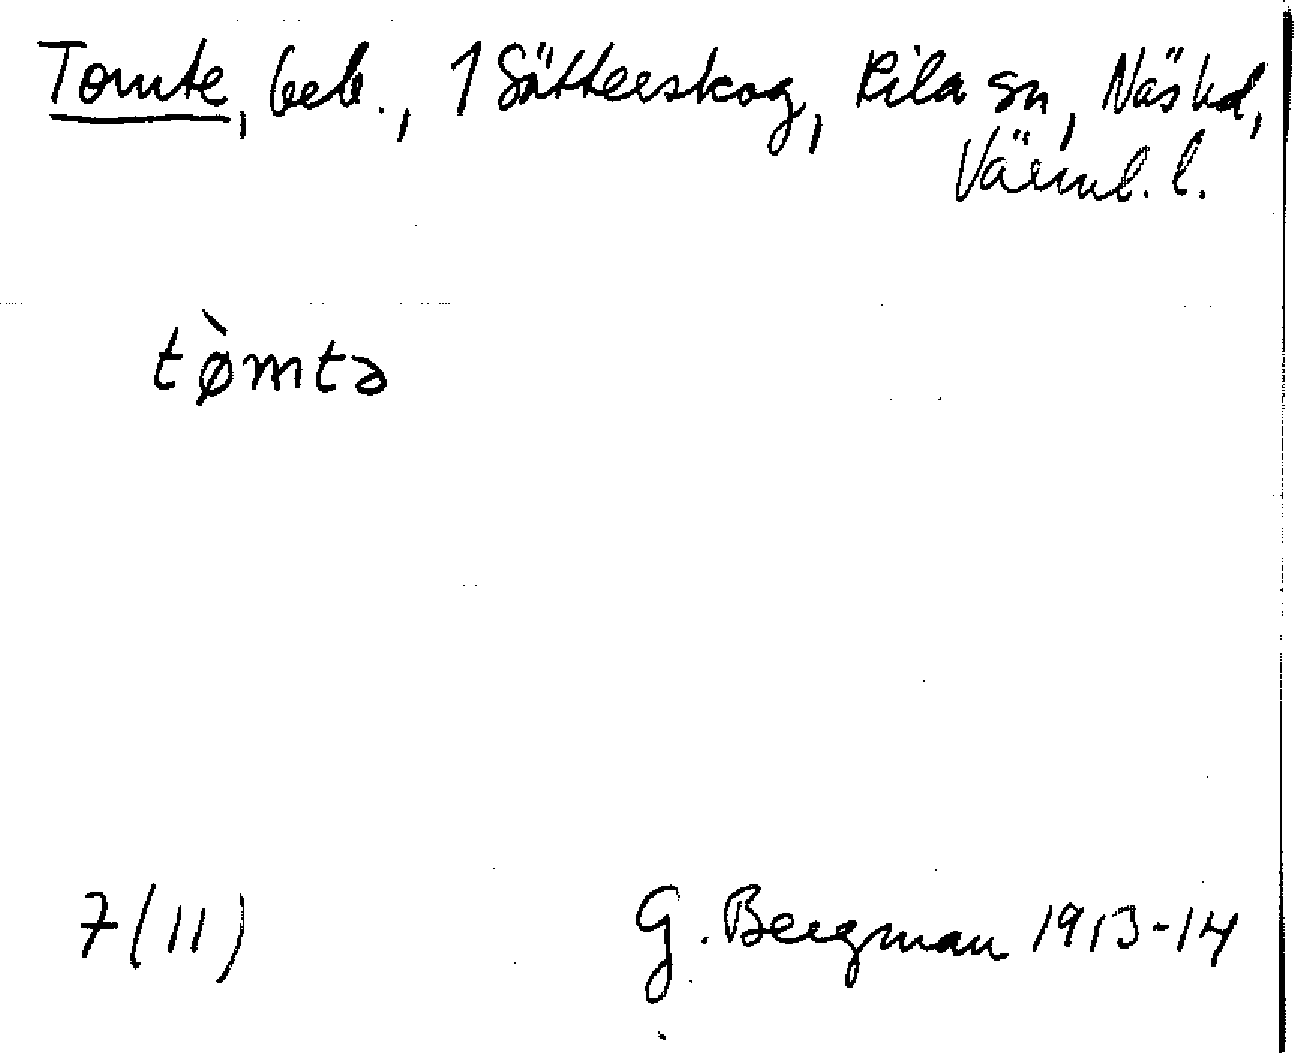 Tomte, beb., 1 Sätterskog, Kila sn, Näs hd,
Värml. l.
tø̀mtə
7(11) G. Bergman 1913-14